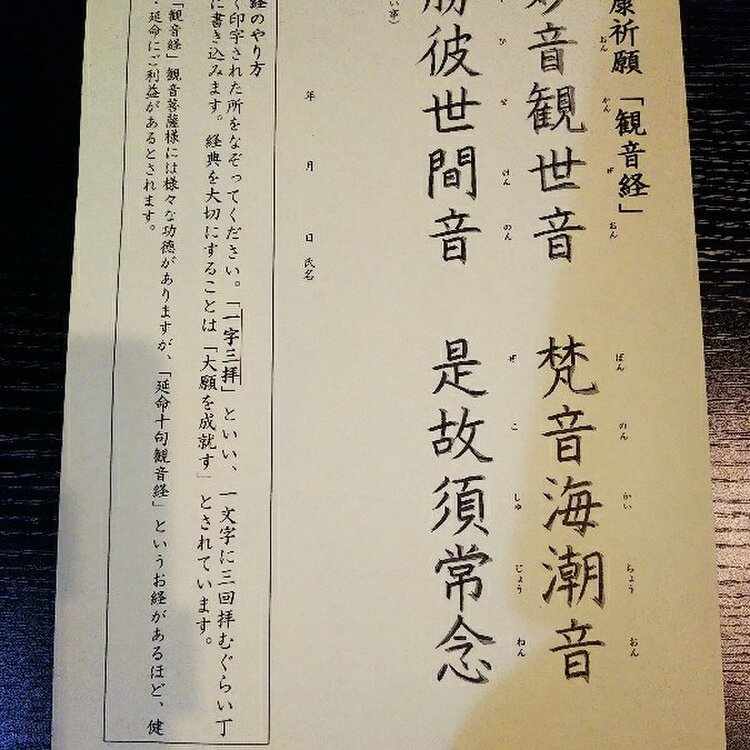 康祈願「観音経」
妙音観世音 梵音海潮音
おん かん ぜ おん ぼん のん かい ちょう おん
勝彼世間音 是故須常念
ひ せ けん のん ぜ こ しゅ じょう ねん
い事）
年 月 日 氏名
経のやり方
く印字された所をなぞってください。「一字三拝」といい、一文字に三回拝むぐらい丁
に書き込みます。経典を大切にすることは「大願を成就す」とされています。
「観音経」観音菩薩様には様々な功徳がありますが、「延命十句観音経」というお経があるほど、健
・延命にご利益があるとされます。